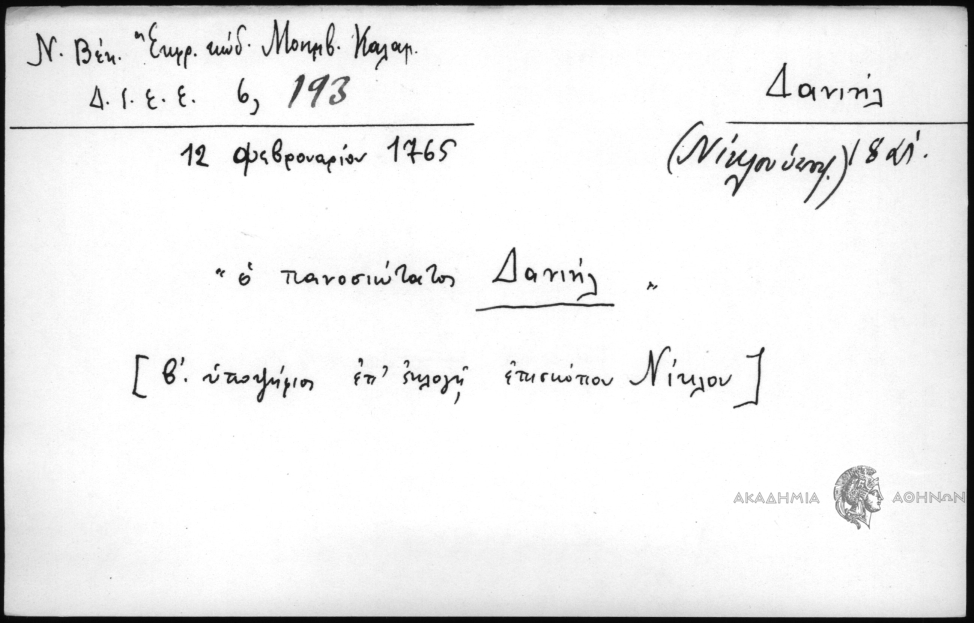 Ν. Βέη. "Ἐκφρ. κώδ. Μονεμβ. Καλαμ.
Δ. Ι. Ε. Ε. 6, 193
Δανιήλ
12 Φεβρουαρίου 1765
(Νίκλου ὑποψ.) 18 αἰ.
" ὁ πανοσιώτατος Δανιήλ "
[ β'. ὑποψήφιος ἐπ' ἐκλογῇ ἐπισκόπου Νίκλου ]
ΑΚΑΔΗΜΙΑ ΑΘΗΝΩΝ